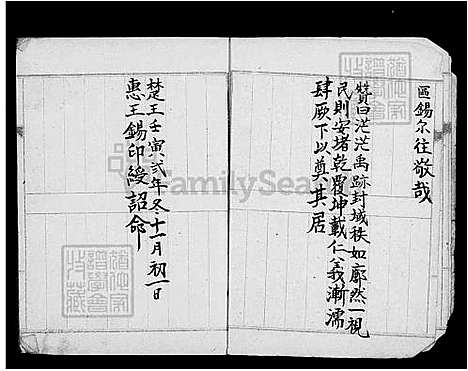 區錫尔往敬哉
贊曰茫茫禹跡封域秩如廓然一視
民則安堵乾覆坤載仁義漸濡
肆厥下以奠其居
楚王壬寅弍年冬十一月初一日
惠王錫印綬詔命
FamilySearch